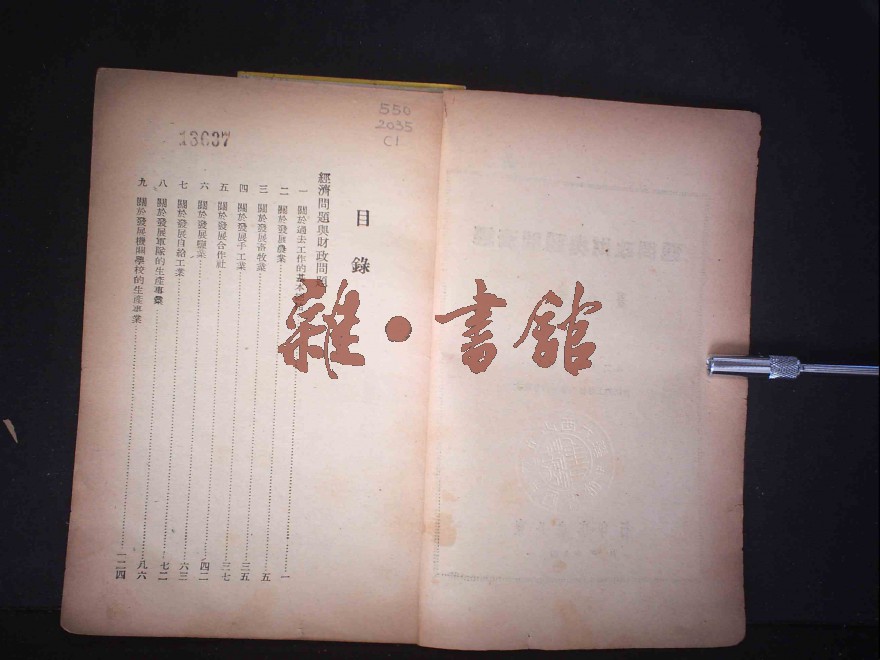 550
2035
C1
13637
目錄
經濟問題與財政問題
一 關於過去工作的基本……一
二 關於發展農業……五
三 關於發展畜牧業……三五
四 關於發展手工業……三七
五 關於發展合作社……四二
六 關於發展鹽業……六三
七 關於發展自給工業……七二
八 關於發展軍隊的生產事業……八六
九 關於發展機關學校的生產事業……一二四
雜·書館